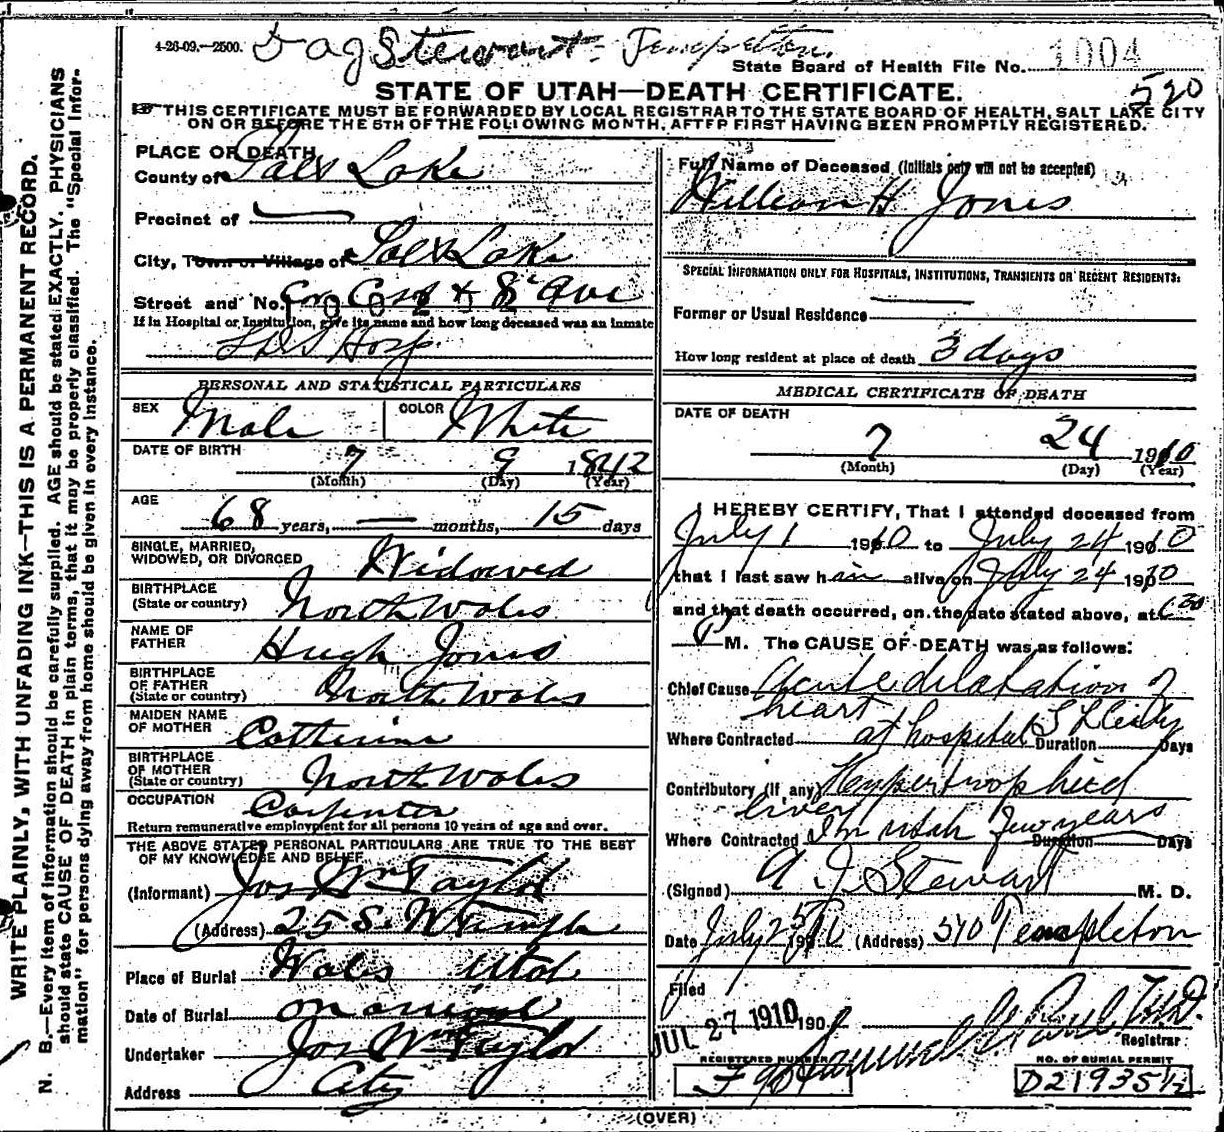 4-26-09.—2500. Stewart - Templeton
State Board of Health File No. 1004
520
STATE OF UTAH—DEATH CERTIFICATE.
THIS CERTIFICATE MUST BE FORWARDED BY LOCAL REGISTRAR TO THE STATE BOARD OF HEALTH, SALT LAKE CITY
ON OR BEFORE THE 5TH OF THE FOLLOWING MONTH, AFTER FIRST HAVING BEEN PROMPTLY REGISTERED.
WRITE PLAINLY, WITH UNFADING INK—THIS IS A PERMANENT RECORD.
N. B.—Every item of information should be carefully supplied. AGE should be stated EXACTLY. PHYSICIANS
should state CAUSE OF DEATH in plain terms, that it may be properly classified. The "Special Infor-
mation" for persons dying away from home should be given in every instance.
PLACE OF DEATH
County of Salt Lake
Precinct of
City, Town or Village of Salt Lake
Street and No. Cor C St & 8th Ave
If in Hospital or Institution, give its name and how long deceased was an inmate
LDS Hosp.
PERSONAL AND STATISTICAL PARTICULARS
SEX Male COLOR White
DATE OF BIRTH 7 9 1842
(Month) (Day) (Year)
AGE 68 years, — months, 15 days
SINGLE, MARRIED,
WIDOWED, OR DIVORCED Widowed
BIRTHPLACE
(State or country) North Wales
NAME OF
FATHER Hugh Jones
BIRTHPLACE
OF FATHER
(State or country) North Wales
MAIDEN NAME
OF MOTHER Catherine
BIRTHPLACE
OF MOTHER
(State or country) North Wales
OCCUPATION Carpenter
Return remunerative employment for all persons 10 years of age and over.
THE ABOVE STATED PERSONAL PARTICULARS ARE TRUE TO THE BEST
OF MY KNOWLEDGE AND BELIEF
(Informant) Jos Wm Taylor
(Address) 25 S. W Temple
Place of Burial Wales Utah
Date of Burial on arrival
Undertaker Jos Wm Taylor
Address City
Full Name of Deceased (Initials only will not be accepted)
William H Jones
SPECIAL INFORMATION ONLY FOR HOSPITALS, INSTITUTIONS, TRANSIENTS OR RECENT RESIDENTS:
Former or Usual Residence
How long resident at place of death 3 days
MEDICAL CERTIFICATE OF DEATH
DATE OF DEATH
7 24 1910
(Month) (Day) (Year)
I HEREBY CERTIFY, That I attended deceased from
July 1 1910 to July 24 1910
that I last saw him alive on July 24 1910
and that death occurred, on the date stated above, at 6 30
P M. The CAUSE OF DEATH was as follows:
Chief Cause Acute dilatation of
heart
Where Contracted at hospital S L City Duration Days
Contributory (if any) Hypertrophied
liver
Where Contracted In Utah few years Duration Days
(Signed) A J Stewart M. D.
Date July 25 1910 (Address) 510 Templeton
Filed
JUL 27 1910 190
Registrar
REGISTERED NUMBER NO. OF BURIAL PERMIT
D21935½
(OVER)